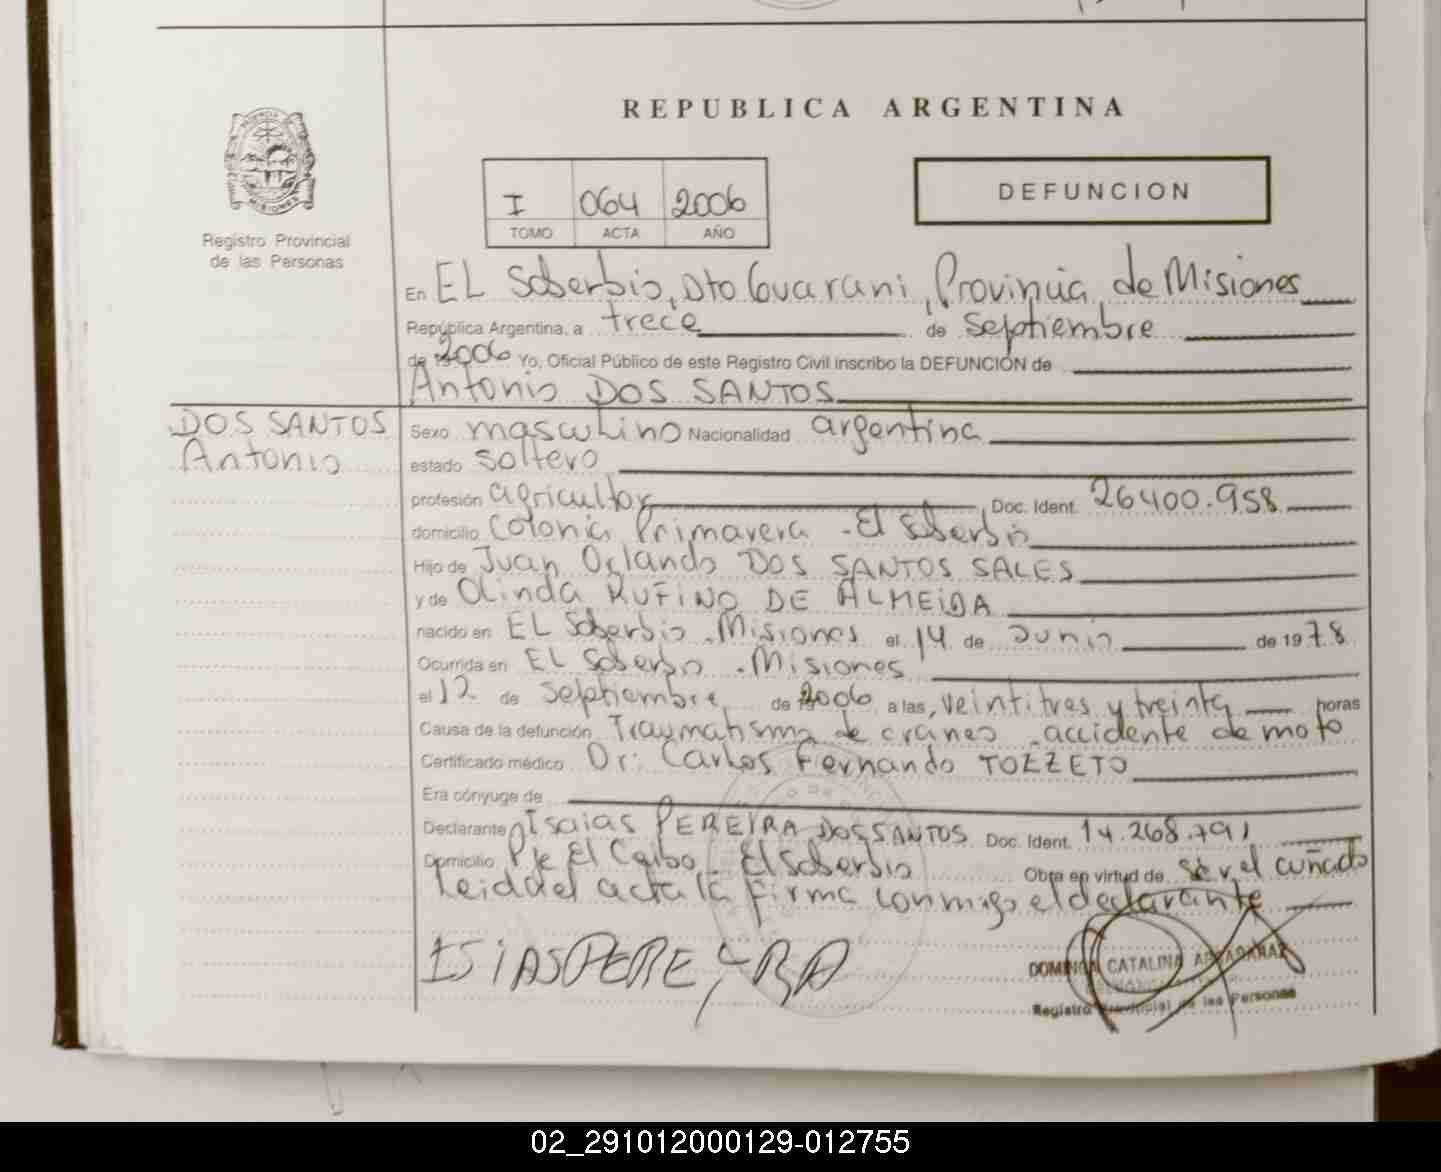 REPUBLICA ARGENTINA
I 064 2006
TOMO ACTA AÑO
DEFUNCION
MISIONES
Registro Provincial
de las Personas
En EL Soberbio, Dto Guarani, Provincia de Misiones
República Argentina, a trece de Septiembre
de 2006 Yo, Oficial Público de este Registro Civil inscribo la DEFUNCIÓN de
Antonio DOS SANTOS
DOS SANTOS
Antonio
Sexo masculino Nacionalidad argentina
estado soltero
profesión agricultor Doc. Ident. 26400.958
domicilio Colonia Primavera - El Soberbio
Hijo de Juan Orlando DOS SANTOS SALES
y de Olinda RUFINO DE ALMEIDA
nacido en EL Soberbio - Misiones el 14 de Junio de 1978
Ocurrida en EL Soberbio - Misiones
el 12 de Septiembre de 2006 a las, veintitres y treinta horas
Causa de la defunción Traumatismo de craneo - accidente de moto
Certificado médico Dr: Carlos Fernando TOZZETO
Era cónyuge de
Declarante Isaias PEREYRA DOS SANTOS Doc. Ident. 14.268.791
Domicilio Pje El Caibo - El Soberbio Obra en virtud de ser el cuñado
Leida el acta la firma conmigo el declarante
ISIAS PEREYRA
CATALINA
Registro Provincial de las Personas
02_291012000129-012755